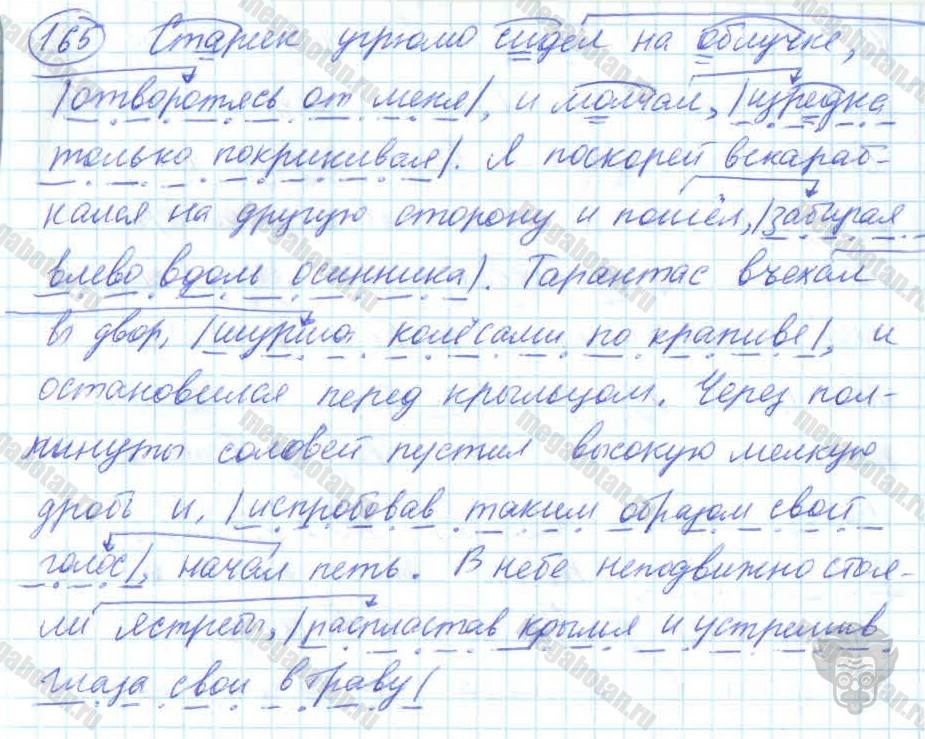 165 Старик угрюмо сидел на облучке,
|отворотясь от меня|, и молчал, |изредка
только покрикивая|. Я поскорей вскараб-
кался на другую сторону и пошёл, |забирая
влево вдоль осинника|. Тарантас въехал
в двор, |шурша колёсами по крапиве|, и
остановился перед крыльцом. Через пол-
минуты соловей пустил высокую мелкую
дробь и, |испробовав таким образом свой
голос|, начал петь. В небе неподвижно стоя-
ли ястребы, |распластав крылья и устремив
глаза свои в траву|